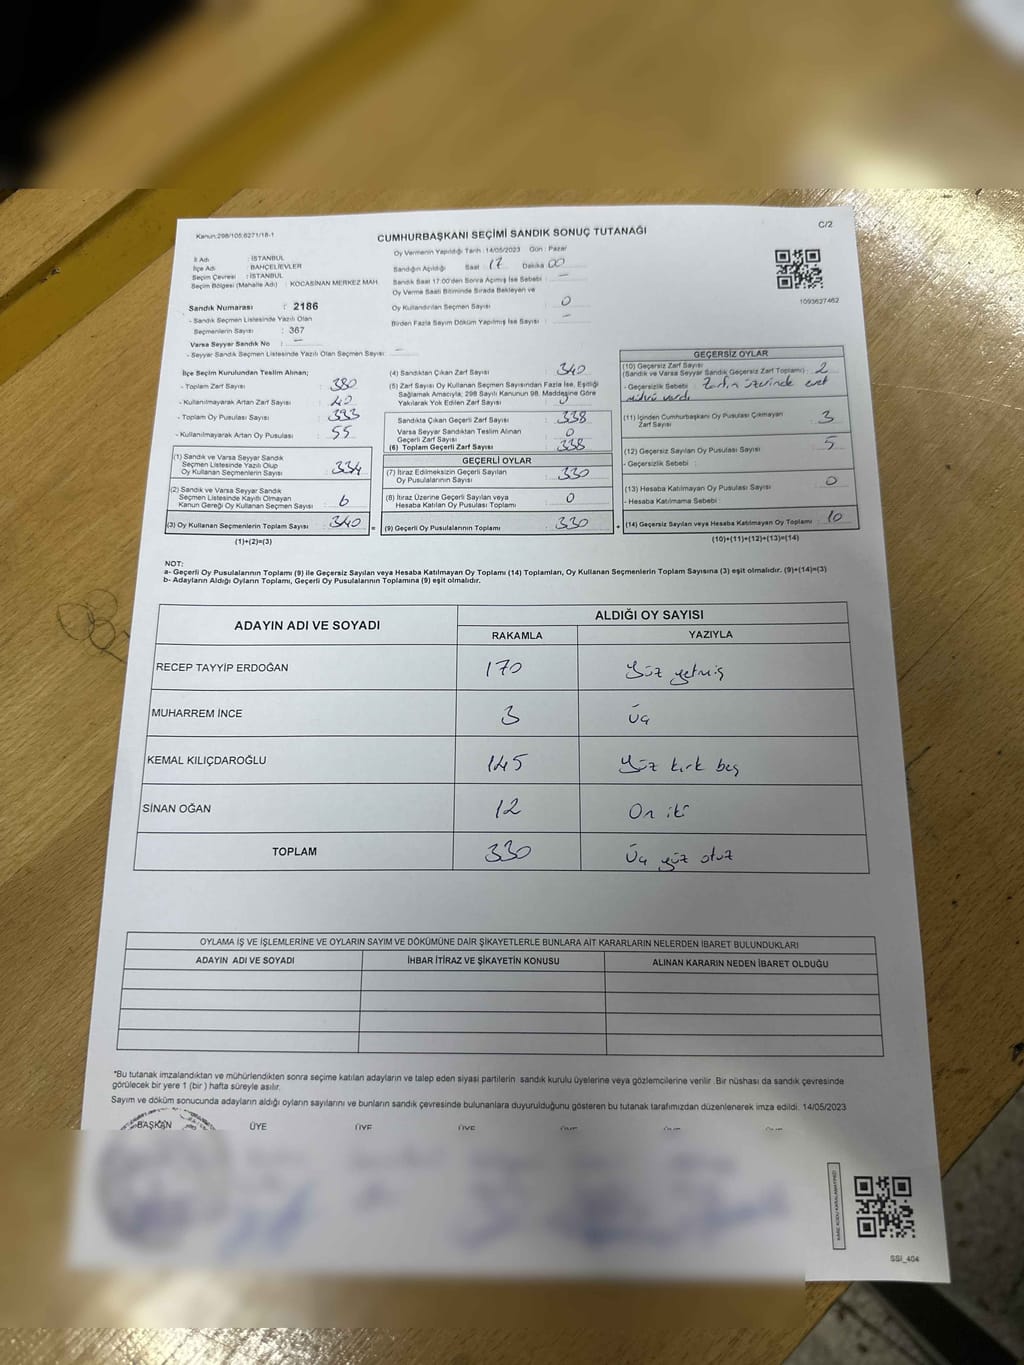 Kanun:298/105;6271/18-1
CUMHURBAŞKANI SEÇİMİ SANDIK SONUÇ TUTANAĞI
C/2
Oy Vermenin Yapıldığı Tarih :14/05/2023 Gün : Pazar
İl Adı : İSTANBUL
İlçe Adı : BAHÇELİEVLER
Seçim Çevresi : İSTANBUL
Seçim Bölgesi (Mahalle Adı) : KOCASİNAN MERKEZ MAH.
Sandığın Açıldığı Saat : 17 Dakika 00
Sandık Saat 17:00'den Sonra Açılmış İse Sebebi : —
Oy Verme Saati Bitiminde Sırada Bekleyen ve
Oy Kullandırılan Seçmen Sayısı : 0
Birden Fazla Sayım Döküm Yapılmış İse Sayısı : —
1093627462
Sandık Numarası : 2186
- Sandık Seçmen Listesinde Yazılı Olan
Seçmenlerin Sayısı : 367
Varsa Seyyar Sandık No : —
- Seyyar Sandık Seçmen Listesinde Yazılı Olan Seçmen Sayısı : —
İlçe Seçim Kurulundan Teslim Alınan;
- Toplam Zarf Sayısı : 380
- Kullanılmayarak Artan Zarf Sayısı : 40
- Toplam Oy Pusulası Sayısı : 393
- Kullanılmayarak Artan Oy Pusulası : 55
(1) Sandık ve Varsa Seyyar Sandık
Seçmen Listesinde Yazılı Olup
Oy Kullanan Seçmenlerin Sayısı : 334
(2) Sandık ve Varsa Seyyar Sandık
Seçmen Listesinde Kayıtlı Olmayan
Kanun Gereği Oy Kullanan Seçmen Sayısı : 6
(3) Oy Kullanan Seçmenlerin Toplam Sayısı : 340 =
(1)+(2)=(3)
(4) Sandıktan Çıkan Zarf Sayısı : 340
(5) Zarf Sayısı Oy Kullanan Seçmen Sayısından Fazla İse, Eşitliği
Sağlamak Amacıyla; 298 Sayılı Kanunun 98. Maddesine Göre
Yakılarak Yok Edilen Zarf Sayısı : 0
Sandıkta Çıkan Geçerli Zarf Sayısı : 338
Varsa Seyyar Sandıktan Teslim Alınan
Geçerli Zarf Sayısı : 0
(6) Toplam Geçerli Zarf Sayısı : 338
GEÇERLİ OYLAR
(7) İtiraz Edilmeksizin Geçerli Sayılan
Oy Pusulalarının Sayısı : 330
(8) İtiraz Üzerine Geçerli Sayılan veya
Hesaba Katılan Oy Pusulası Toplamı : 0
(9) Geçerli Oy Pusulalarının Toplamı : 330 +
GEÇERSİZ OYLAR
(10) Geçersiz Zarf Sayısı
(Sandık ve Varsa Seyyar Sandık Geçersiz Zarf Toplamı) : 2
- Geçersizlik Sebebi : Zarfın üzerinde evet
mührü vardı
(11) İçinden Cumhurbaşkanı Oy Pusulası Çıkmayan
Zarf Sayısı : 3
(12) Geçersiz Sayılan Oy Pusulası Sayısı : 5
- Geçersizlik Sebebi :
(13) Hesaba Katılmayan Oy Pusulası Sayısı : 0
- Hesaba Katılmama Sebebi :
(14) Geçersiz Sayılan veya Hesaba Katılmayan Oy Toplamı : 10
(10)+(11)+(12)+(13)=(14)
NOT:
a- Geçerli Oy Pusulalarının Toplamı (9) ile Geçersiz Sayılan veya Hesaba Katılmayan Oy Toplamı (14) Toplamları, Oy Kullanan Seçmenlerin Toplam Sayısına (3) eşit olmalıdır. (9)+(14)=(3)
b- Adayların Aldığı Oyların Toplamı, Geçerli Oy Pusulalarının Toplamına (9) eşit olmalıdır.
ADAYIN ADI VE SOYADI
ALDIĞI OY SAYISI
RAKAMLA YAZIYLA
RECEP TAYYİP ERDOĞAN 170 Yüz yetmiş
MUHARREM İNCE 3 Üç
KEMAL KILIÇDAROĞLU 145 Yüz kırk beş
SİNAN OĞAN 12 On iki
TOPLAM 330 Üç yüz otuz
OYLAMA İŞ VE İŞLEMLERİNE VE OYLARIN SAYIM VE DÖKÜMÜNE DAİR ŞİKAYETLERLE BUNLARA AİT KARARLARIN NELERDEN İBARET BULUNDUKLARI
ADAYIN ADI VE SOYADI İHBAR İTİRAZ VE ŞİKAYETİN KONUSU ALINAN KARARIN NEDEN İBARET OLDUĞU
*Bu tutanak imzalandıktan ve mühürlendikten sonra seçime katılan adayların ve talep eden siyasi partilerin sandık kurulu üyelerine veya gözlemcilerine verilir .Bir nüshası da sandık çevresinde
görülecek bir yere 1 (bir ) hafta süreyle asılır.
Sayım ve döküm sonucunda adayların aldığı oyların sayılarını ve bunların sandık çevresinde bulunanlara duyurulduğunu gösteren bu tutanak tarafımızdan düzenlenerek imza edildi. 14/05/2023
BAŞKAN ÜYE ÜYE ÜYE ÜYE ÜYE ÜYE
KARE KODU KARALAMAYINIZ!
SSI_404